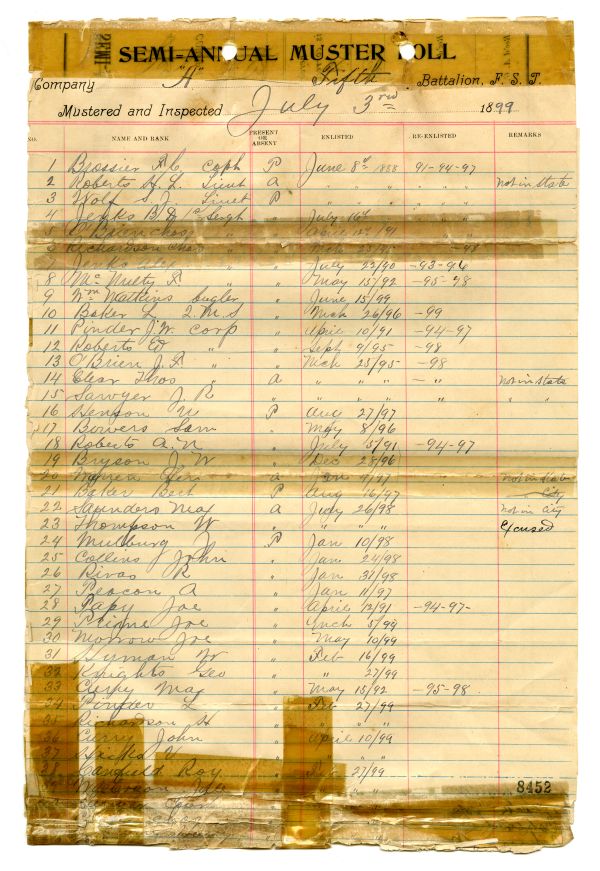 SEMI-ANNUAL MUSTER ROLL
Company "A" Fifth Battalion, F. S. T.
Mustered and Inspected July 3rd 1899
NO. NAME AND RANK PRESENT OR ABSENT ENLISTED RE-ENLISTED REMARKS
1 Brossier Capt P June 8" 1888 91-94-97
2 Roberts H. L. Lieut A " " " " " " not in State
3 Wolf S. J. Lieut P " " " " " "
4 Jenks B Sergt " July
5 O'Brien Chas " " April 12/91
6 Richardson Chas " " Mch -98
7 " " July 22/90 -93-96
8 McNulty R " " May 15/92 -95-98
9 Wm Watkins bugler " June 15/99
10 Baker L Q.M.S " Mch 26/96 -99
11 Pinder J.W. Corp " April 10/91 -94-97
12 Roberts Ed " " Sept 9/95 -98
13 O'Brien J. R " " Mch 25/95 -98
14 Clear Thos " A " " " - " not in State
15 Sawyer J. R " " " " " " "
16 Henson N P Aug 27/97
17 Bowers Sam " May 8/96
18 Roberts A. N " July 5/91 -94-97
19 Bryson J W " Dec 28/96
20 a Jan 9/97 not in State
21 Baker Bert P Aug 16/97 City
22 Saunders Max A July 26/98 not in City
23 Thompson W " " " " Excused
24 Mulburg J P Jan 10/98
25 Collins John " Jan 24/98
26 Rivas R " Jan 31/98
27 Peacon A " Jan 11/97
28 Papy Joe " April 12/91 -94-97-
29 Joe " Mch 5/99
30 Morrow Joe " May 10/99
31 Hyman W " Feb 16/99
32 Knights Geo " " 27/99
33 Curry Max " May 15/92 -95-98
34 Pinder L " Feb 27/99
35 Richardson H " " "
36 Curry John " April 10/99
37 " " "
38 Canfield Roy " 27/99
8452